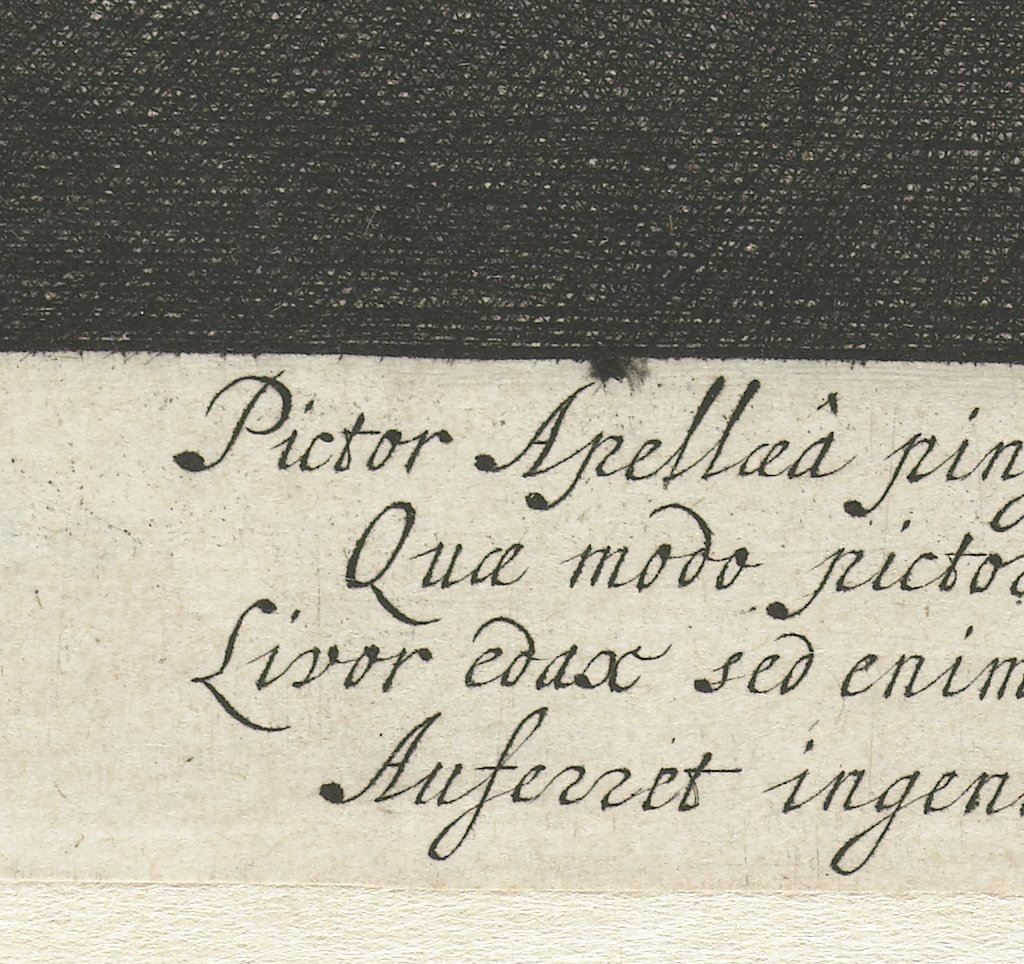 Pictor Apellæâ ping
Quæ modo picto
Livor edax sed enim
Auferret ingen